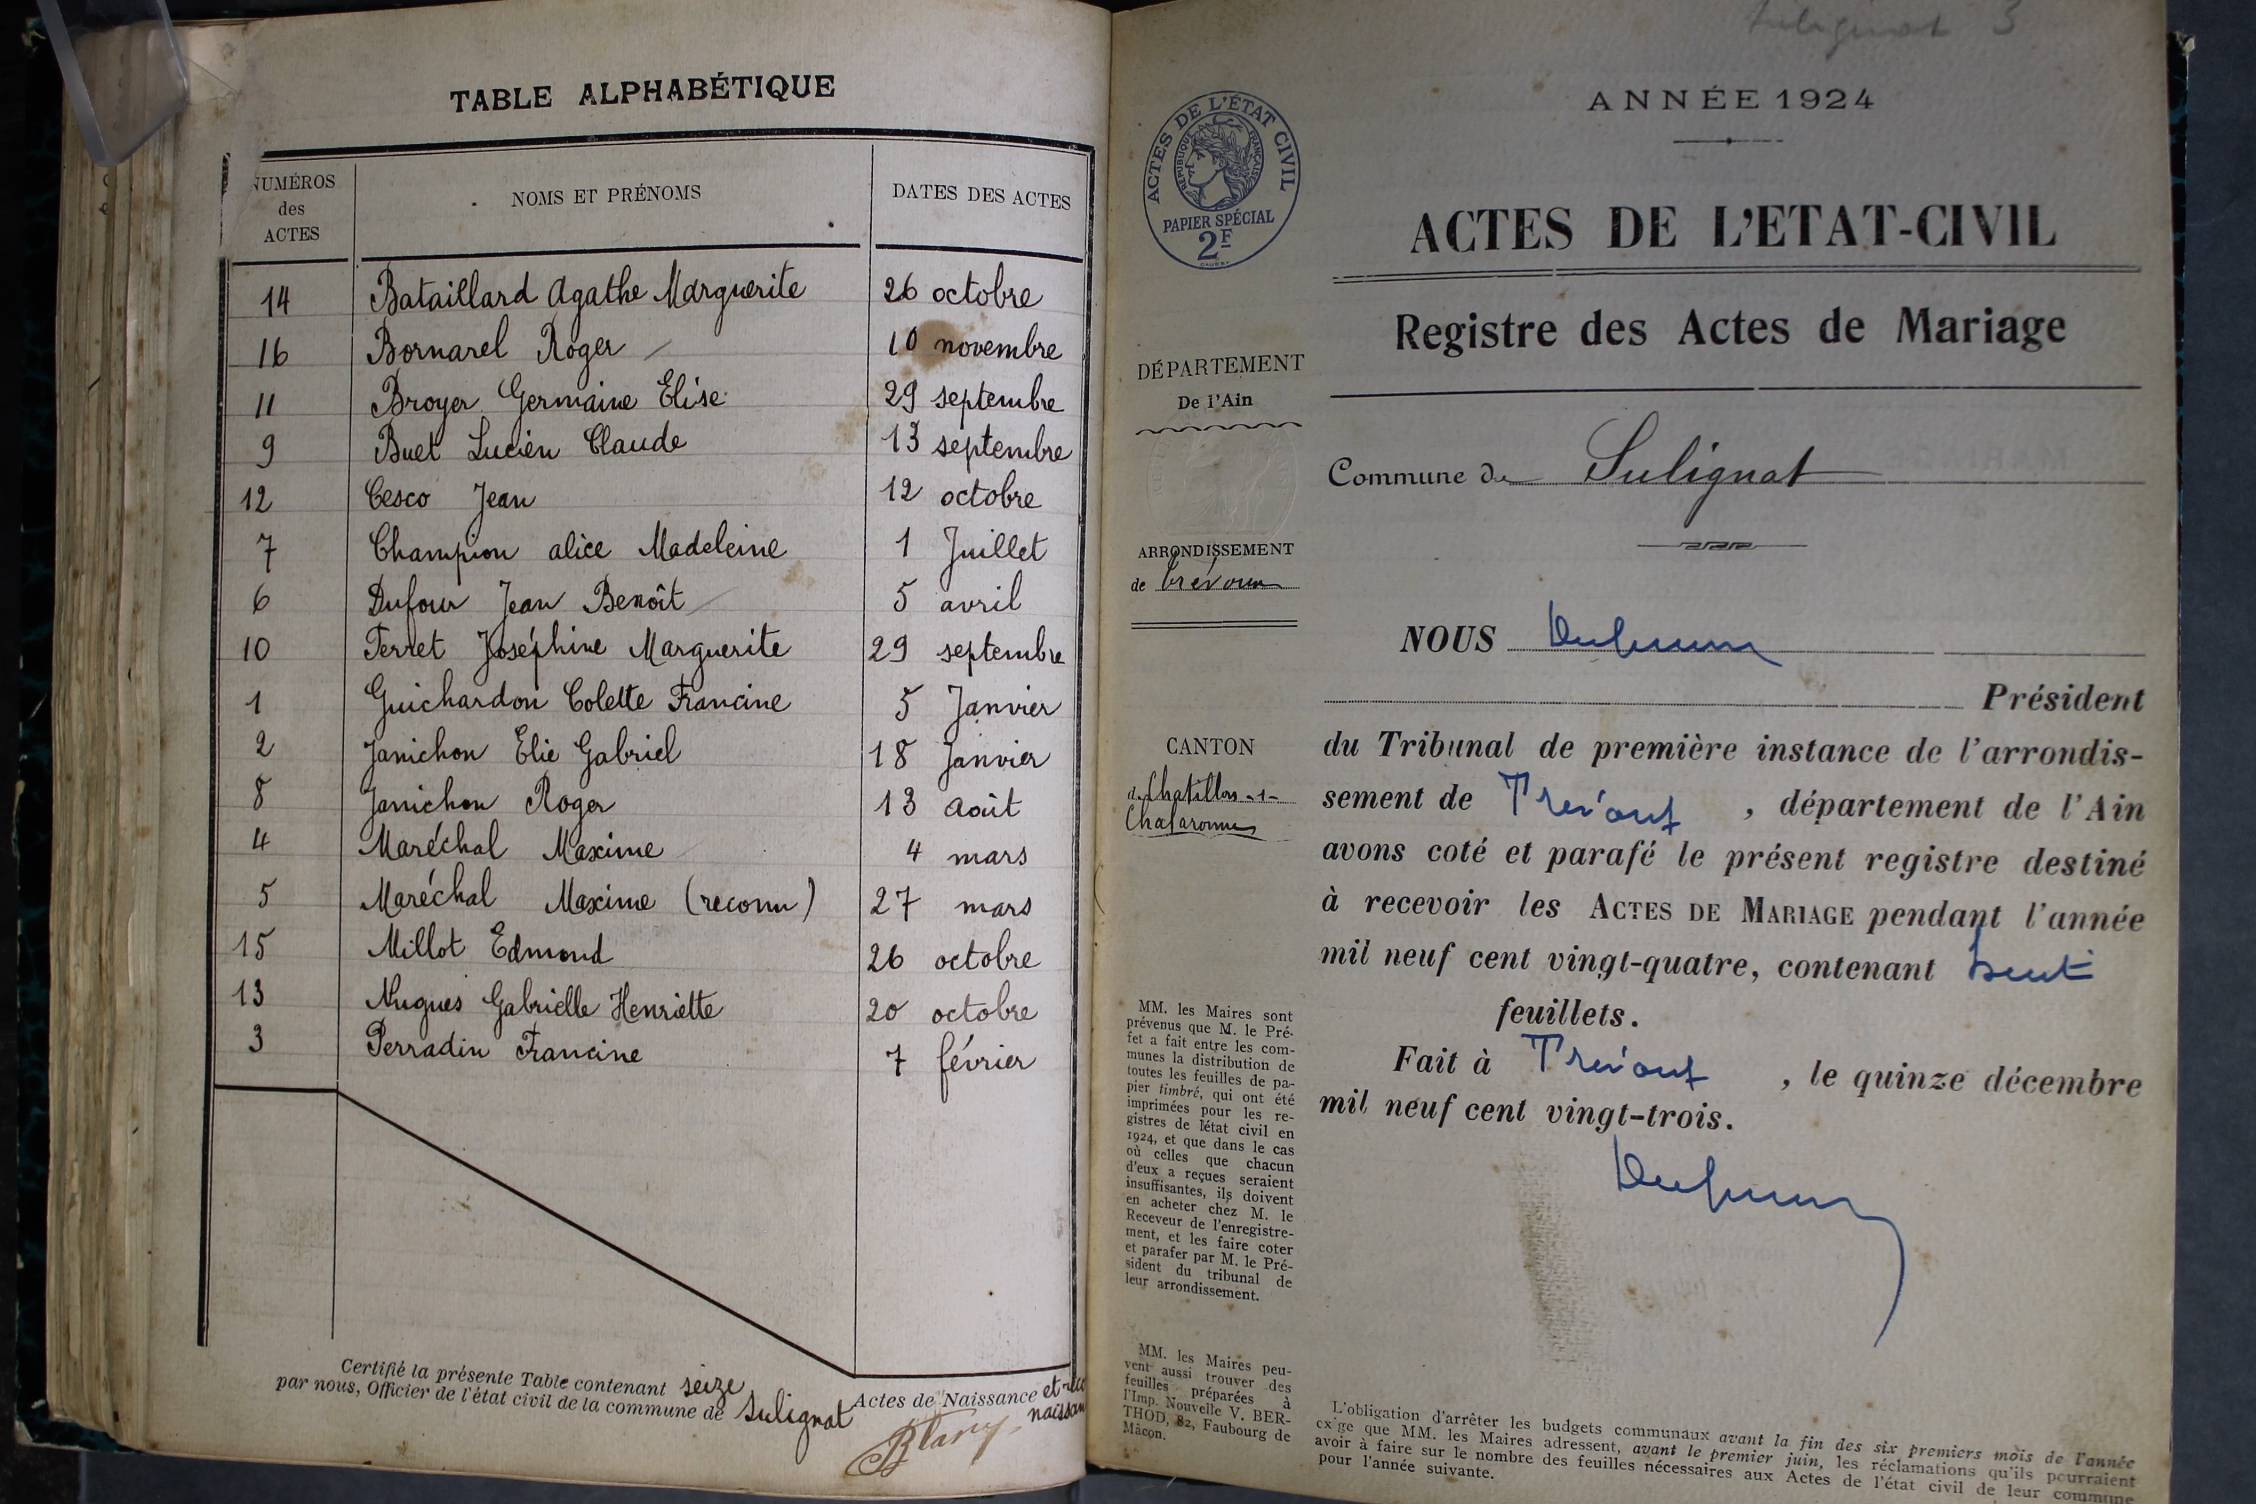 TABLE ALPHABÉTIQUE
NUMÉROS
des
ACTES
NOMS ET PRÉNOMS
DATES DES ACTES
14 Bataillard Agathe Marguerite 26 octobre
16 Bornarel Roger 10 novembre
11 Broyer Germaine Elise 29 septembre
9 Buet Lucien Claude 13 septembre
12 Cesco Jean 12 octobre
7 Champion alice Madeleine 1 Juillet
6 Dufour Jean Benoît 5 avril
10 Ferret Joséphine Marguerite 29 septembre
1 Guichardon Colette Francine 5 Janvier
2 Janichon Elie Gabriel 18 Janvier
8 Janichon Roger 13 août
4 Maréchal Maxime 4 mars
5 Maréchal Maxime (reconnu) 27 mars
15 Millot Edmond 26 octobre
13 Nugues Gabrielle Henriette 20 octobre
3 Perradin Francine 7 février
Certifié la présente Table contenant seize Actes de Naissance et reco
naissan
par nous, Officier de l'état civil de la commune de Sulignat
Sulignat 3
ANNÉE 1924
ACTES DE L'ÉTAT CIVIL
RÉPUBLIQUE FRANÇAISE
PAPIER SPÉCIAL
2F
ACTES DE L'ETAT-CIVIL
Registre des Actes de Mariage
DÉPARTEMENT
De l'Ain
Commune de Sulignat
ARRONDISSEMENT
de Trévoux
NOUS
Président
CANTON
de Chatillon-s-
Chalaronne
du Tribunal de première instance de l'arrondis-
sement de Trévoux, département de l'Ain
avons coté et parafé le présent registre destiné
à recevoir les ACTES DE MARIAGE pendant l'année
mil neuf cent vingt-quatre, contenant huit
feuillets.
Fait à Trévoux, le quinze décembre
mil neuf cent vingt-trois.
MM. les Maires sont
prévenus que M. le Pré-
fet a fait entre les com-
munes la distribution de
toutes les feuilles de pa-
pier timbré, qui ont été
imprimées pour les re-
gistres de l'état civil en
1924, et que dans le cas
où celles que chacun
d'eux a reçues seraient
insuffisantes, ils doivent
en acheter chez M. le
Receveur de l'enregistre-
ment, et les faire coter
et parafer par M. le Pré-
sident du tribunal de
leur arrondissement.
MM. les Maires peu-
vent aussi trouver des
feuilles préparées à
l'Imp. Nouvelle V. BER-
THOD, 82, Faubourg de
Mâcon.
L'obligation d'arrêter les budgets communaux avant la fin des six premiers mois de l'année
exige que MM. les Maires adressent, avant le premier juin, les réclamations qu'ils pourraient
avoir à faire sur le nombre des feuilles nécessaires aux Actes de l'état civil de leur commune
pour l'année suivante.